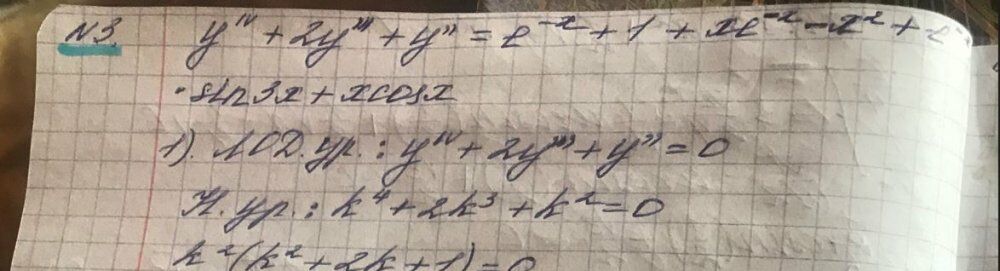 N3. y^IV + 2y''' + y'' = e^-x + 1 + xe^-x - x² + e^-x
·sin3x + xcosx
1). ЛОД.ур.: y^IV + 2y''' + y'' = 0
Х.ур.: k⁴ + 2k³ + k² = 0
k²(k² + 2k + 1) = 0